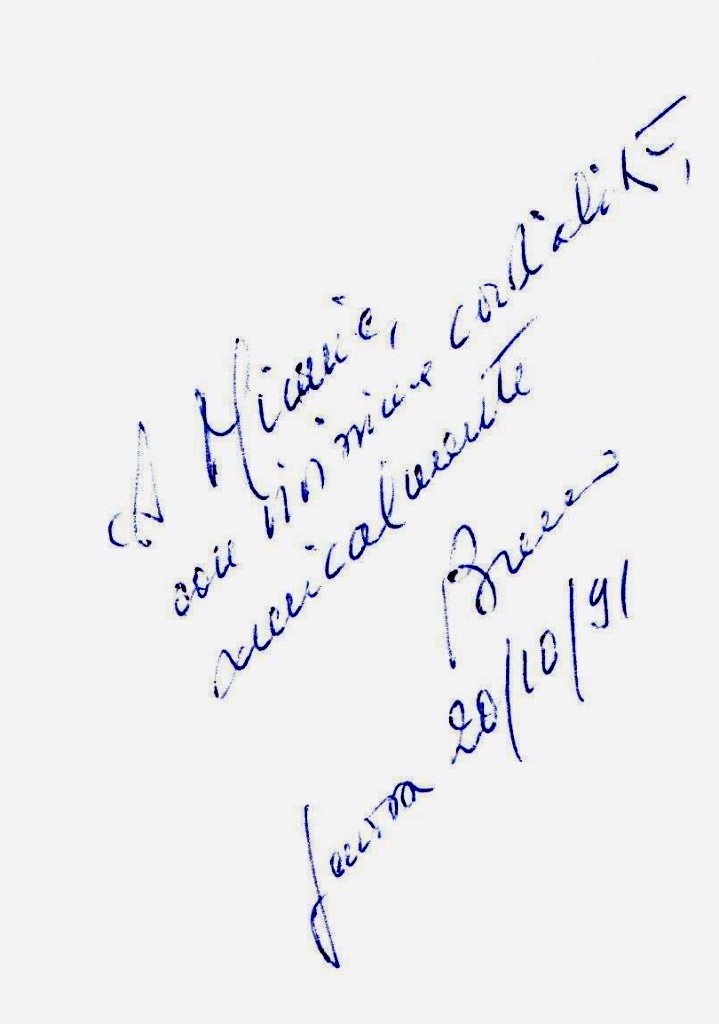 A
con vivissima cordialità,
amicalmente
Bruno
Genova 20/10/91